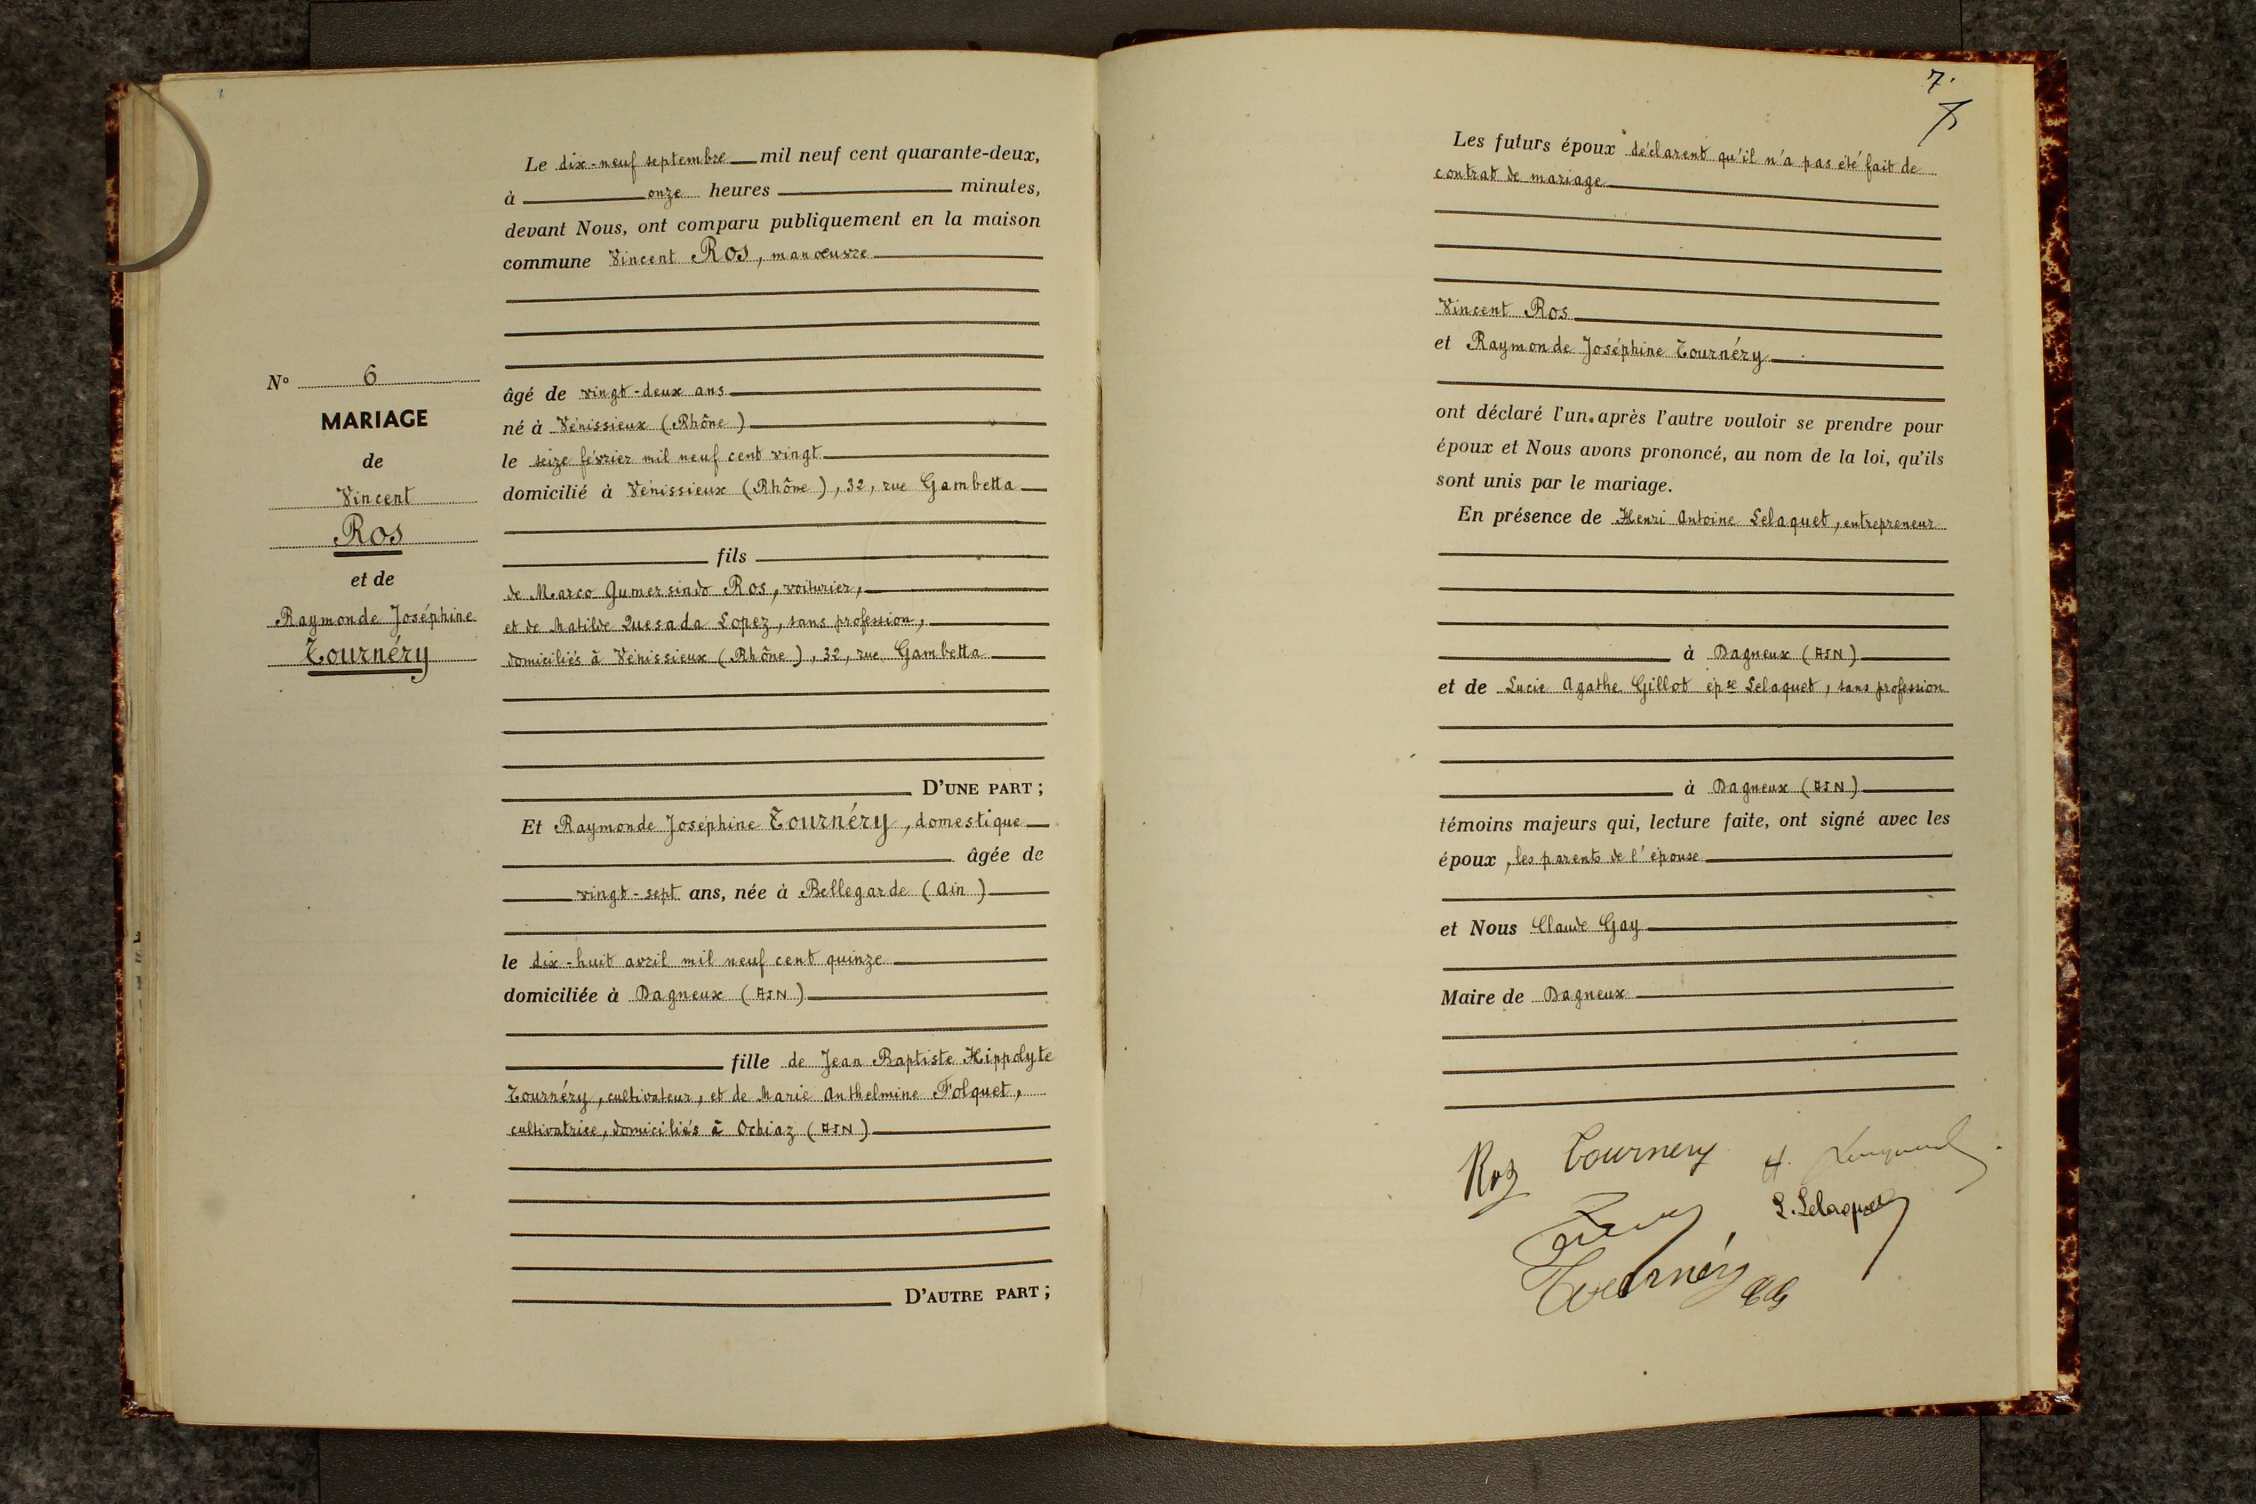 Le dix-neuf septembre mil neuf cent quarante-deux,
à onze heures minutes,
devant Nous, ont comparu publiquement en la maison
commune Vincent Ros, manœuvre
âgé de vingt-deux ans
né à Vénissieux (Rhône)
le seize février mil neuf cent vingt
domicilié à Vénissieux (Rhône), 32, rue Gambetta
fils
de Marco Gumersindo Ros, voiturier,
et de Matilde Quesada Lopez, sans profession,
domiciliés à Vénissieux (Rhône), 32, rue Gambetta
D'UNE PART ;
Et Raymonde Joséphine Tournéry, domestique
âgée de
vingt-sept ans, née à Bellegarde (Ain)
le dix-huit avril mil neuf cent quinze
domiciliée à Dagneux (AIN)
fille de Jean Baptiste Hippolyte
Tournéry, cultivateur, et de Marie Anthelmine Folquet,
cultivatrice, domiciliés à Ochiaz (AIN)
D'AUTRE PART ;
N° 6
MARIAGE
de
Vincent
Ros
et de
Raymonde Joséphine
Tournéry
7.
Les futurs époux déclarent qu'il n'a pas été fait de
contrat de mariage
Vincent Ros
et Raymonde Joséphine Tournéry
ont déclaré l'un après l'autre vouloir se prendre pour
époux et Nous avons prononcé, au nom de la loi, qu'ils
sont unis par le mariage.
En présence de Henri Antoine Lelaquet, entrepreneur
à Dagneux (AIN)
et de Lucie Agathe Gillot épse Lelaquet, sans profession
à Dagneux (AIN)
témoins majeurs qui, lecture faite, ont signé avec les
époux, les parents de l'épouse
et Nous Claude Gay
Maire de Dagneux
Ros Tournery H.
L. Lelaquet
Tournéry